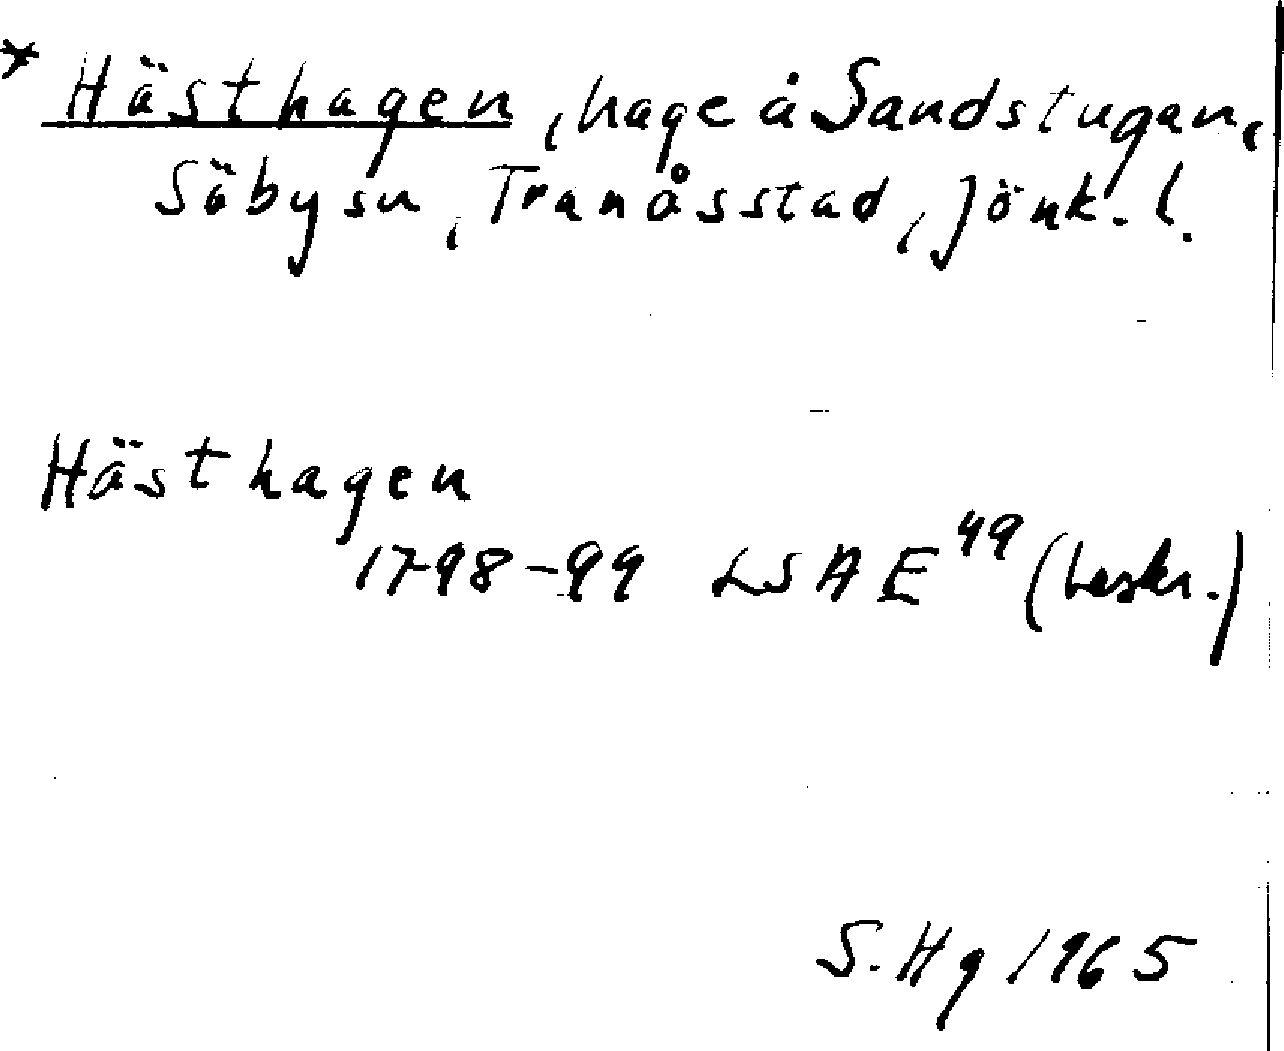 * Hästhagen, hage å Sandstugan,
Säby sn, Tranås stad, Jönk. l.
Hästhagen
1798-99 LSA E 49 (beskr.)
S. Hg 1965